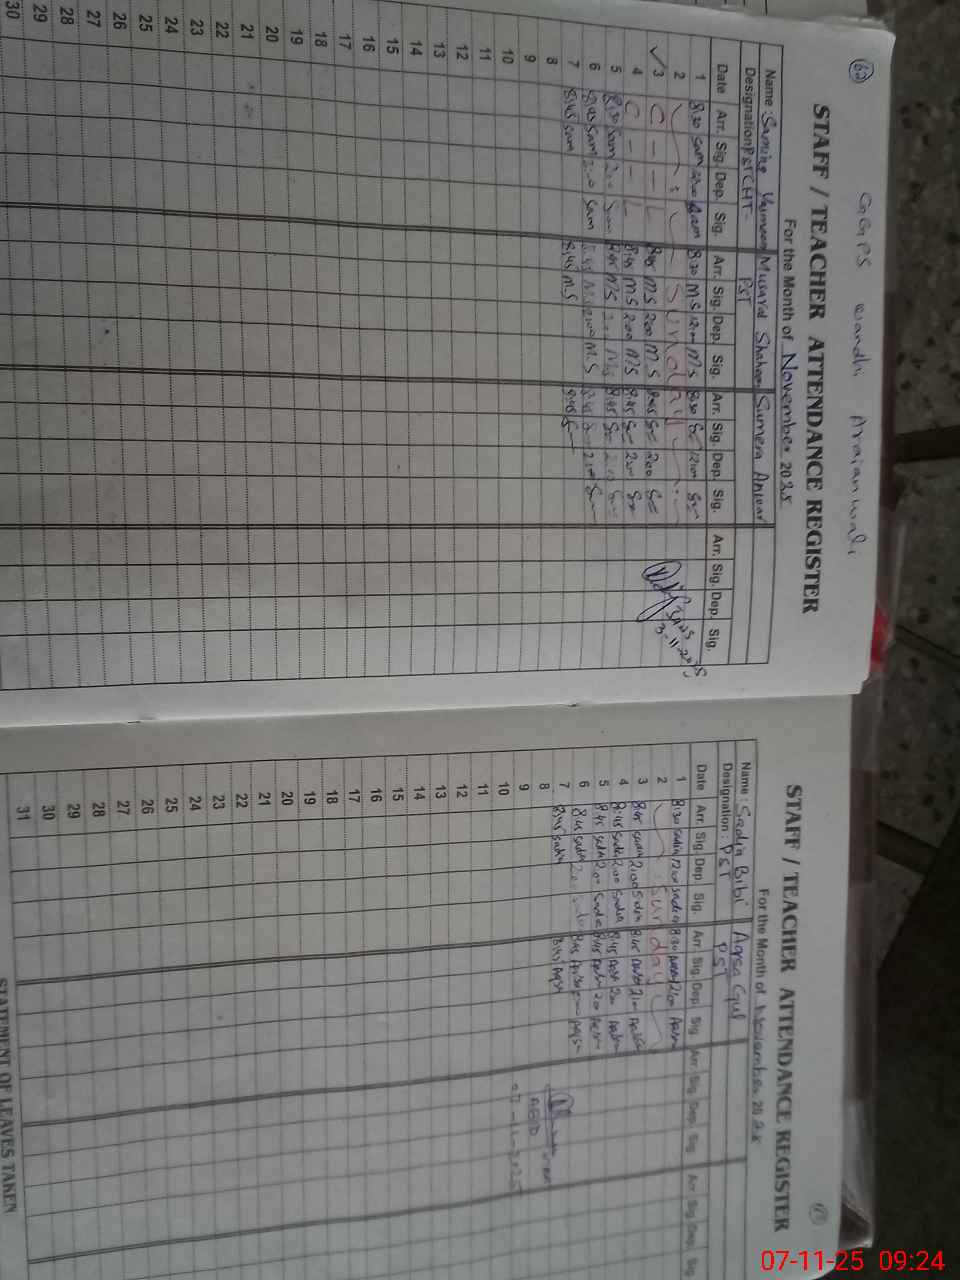 62
GGPS Wandhi Araian wali
STAFF / TEACHER ATTENDANCE REGISTER
For the Month of November 2025
Name : Samina Musarat Shaheen Sumera Anwar
Designation PST CHT PST
Date Arr. Sig. Dep. Sig. Arr. Sig. Dep. Sig. Arr. Sig. Dep. Sig. Arr. Sig. Dep. Sig.
1 8:30 Sam 12:00 Sam 8:30 M.S 12:00 M.S 8:30 12:00
2 Sunday
3 C — — L 8:45 M.S 2:00 M.S 8:45 2:00
4 C — — L 8:45 M.S 2:00 M.S 8:45 2:00
5 8:30 Sam 2:00 Sam 8:45 M.S 2:00 M.S 8:45 2:00
6 8:45 Sam 2:00 Sam 8:45 M.S 2:00 M.S 8:45 2:00
7 8:45 Sam 8:45 M.S 8:45
8
9
10
11
12
13
14
15
16
17
18
19
20
21
22
23
24
25
26
27
28
29
30
3-11-2025
STAFF / TEACHER ATTENDANCE REGISTER
For the Month of November 2025
Name : Sadia Bibi Aqsa Gul
Designation : PST PST
Date Arr. Sig. Dep. Sig. Arr. Sig. Dep. Sig. Arr. Sig. Dep. Sig. Arr. Sig. Dep. Sig.
1 8:30 Sadia 12:00 Sadia 8:30 Aqsa 12:00 Aqsa
2 Sunday
3 8:45 Sadia 2:00 Sadia 8:45 Aqsa 2:00 Aqsa
4 8:45 Sadia 2:00 Sadia 8:45 Aqsa 2:00 Aqsa
5 8:45 Sadia 2:00 Sadia 8:45 Aqsa 2:00 Aqsa
6 8:45 Sadia 2:00 Sadia 8:45 Aqsa 2:00 Aqsa
7 8:45 Sadia 8:45 Aqsa
8
9
10
11
12
13
14
15
16
17
18
19
20
21
22
23
24
25
26
27
28
29
30
31
STATEMENT OF LEAVES TAKEN
07-11-25 09:24